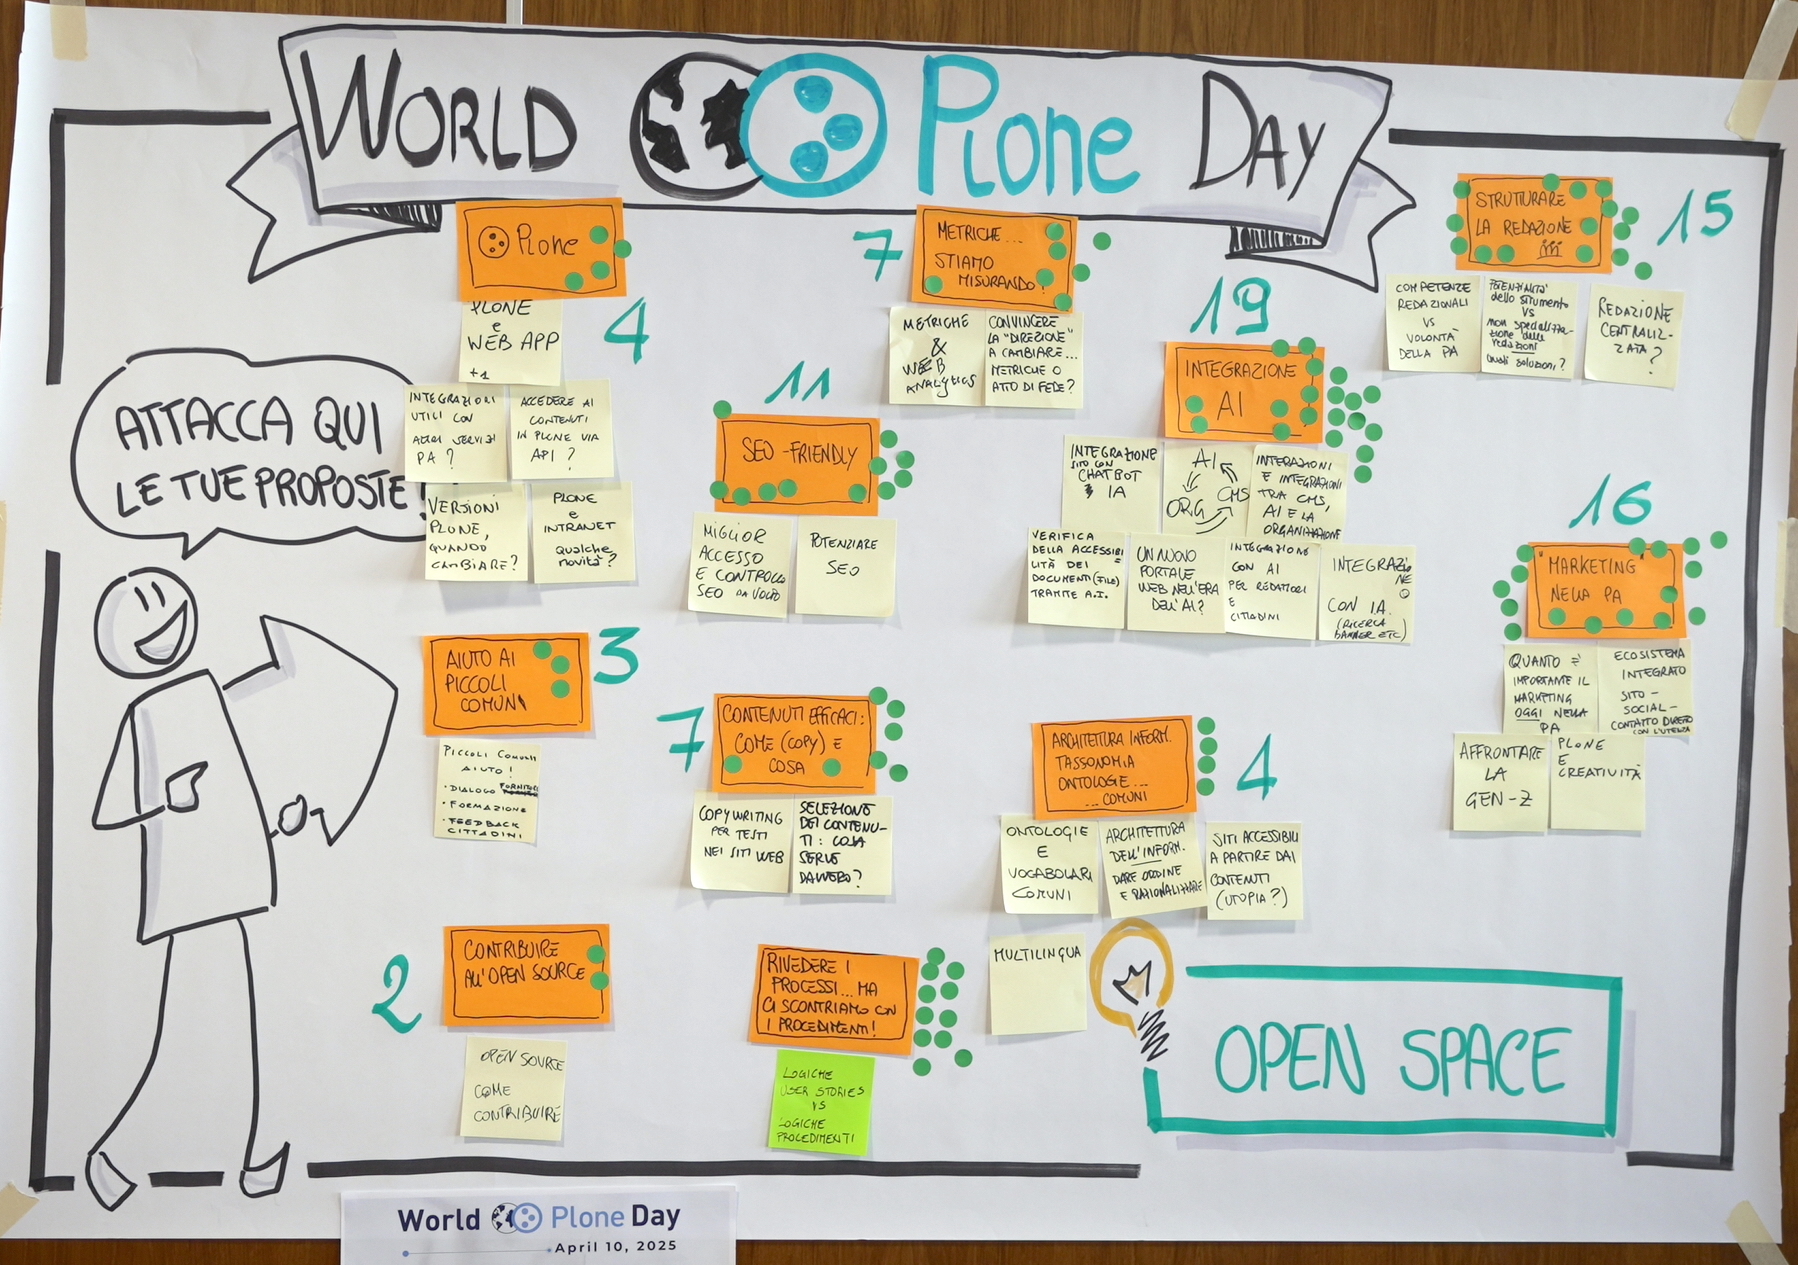 WORLD Plone DAY
ATTACCA QUI
LE TUE PROPOSTE!
Plone
4
PLONE
e
WEB APP
+1
INTEGRAZIONI
UTILI CON
ALTRI SERVIZI
PA ?
ACCEDERE AI
CONTENUTI
IN PLONE VIA
API ?
VERSIONI
PLONE,
QUANDO
CAMBIARE?
PLONE
e
INTRANET
Qualche
novità?
7
METRICHE...
STIAMO
MISURANDO?
METRICHE
&
WEB
ANALYTICS
CONVINCERE
LA "DIREZIONE"
A CAMBIARE...
METRICHE O
ATTO DI FEDE?
11
SEO-FRIENDLY
MIGLIOR
ACCESSO
E CONTROLLO
SEO DA VOLTO
POTENZIARE
SEO
19
INTEGRAZIONE
AI
INTEGRAZIONE
SITO CON
CHATBOT
IA
AI
ORG
CMS
INTERAZIONI
E INTEGRAZIONI
TRA CMS,
AI E LA
ORGANIZZAZIONE
VERIFICA
DELLA ACCESSIBI
LITÀ DEI
DOCUMENTI (FILE)
TRAMITE A.I.
UN NUOVO
PORTALE
WEB NELL'ERA
DELL'AI?
INTEGRAZIONE
CON AI
PER REDATTORI
E
CITTADINI
INTEGRAZIO
NE
CON IA.
(RICERCA
BANNER ETC)
15
STRUTTURARE
LA REDAZIONE
COMPETENZE
REDAZIONALI
VS
VOLONTÀ
DELLA PA
POTENZIALITÀ
dello strumento
VS
non specializza-
zione delle
redazioni
Quali soluzioni?
REDAZIONE
CENTRALIZ-
ZATA?
16
MARKETING
NELLA PA
QUANTO È
IMPORTANTE IL
MARKETING
OGGI NELLA
PA
ECOSISTEMA
INTEGRATO
SITO -
SOCIAL -
CONTATTO DIRETTO
CON L'UTENZA
AFFRONTARE
LA
GEN-Z
PLONE
E
CREATIVITÀ
3
AIUTO AI
PICCOLI
COMUNI
PICCOLI COMUNI
AIUTO!
• DIALOGO FORNITORI
• FORMAZIONE
• FEEDBACK
CITTADINI
7
CONTENUTI EFFICACI:
COME (COPY) E
COSA
COPYWRITING
PER TESTI
NEI SITI WEB
SELEZIONE
DEI CONTENU-
TI: COSA
SERVE
DAVVERO?
4
ARCHITETTURA INFORM.
TASSONOMIA
ONTOLOGIE...
... COMUNI
ONTOLOGIE
E
VOCABOLARI
COMUNI
ARCHITETTURA
DELL'INFORM.
DARE ORDINE
E RAZIONALIZZARE
SITI ACCESSIBILI
A PARTIRE DAI
CONTENUTI
(UTOPIA?)
MULTILINGUA
2
CONTRIBUIRE
ALL'OPEN SOURCE
OPEN SOURCE
COME
CONTRIBUIRE
RIVEDERE I
PROCESSI... MA
CI SCONTRIAMO CON
I PROCEDIMENTI!
LOGICHE
USER STORIES
VS
LOGICHE
PROCEDIMENTI
OPEN SPACE
World Plone Day
April 10, 2025